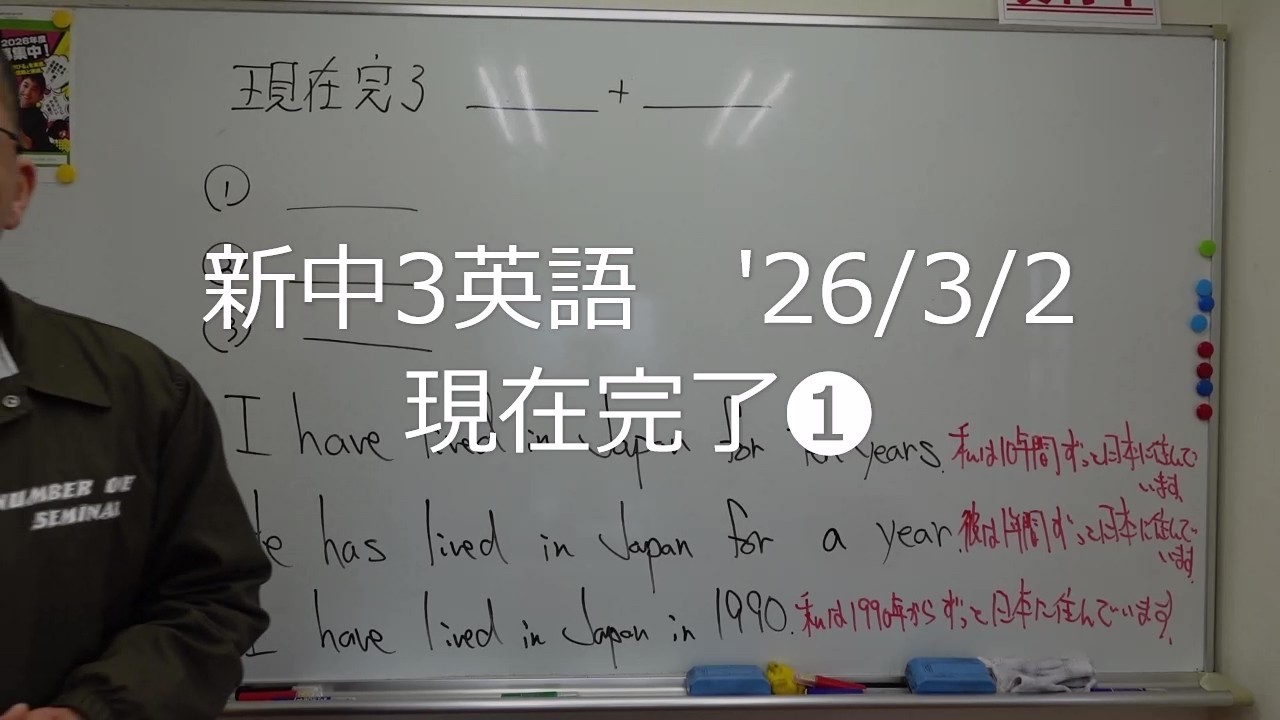 2026年度
現在完了 ＿＿＿ + ＿＿＿
①
②
③
新中3英語 '26/3/2
現在完了❶
I have lived in Japan for ten years. 私は10年間ずっと日本に住んで
います
He has lived in Japan for a year. 彼は1年間ずっと日本に住んで
います
I have lived in Japan in 1990. 私は1990年からずっと日本に住んでいます
NUMBER OF
SEMINAR